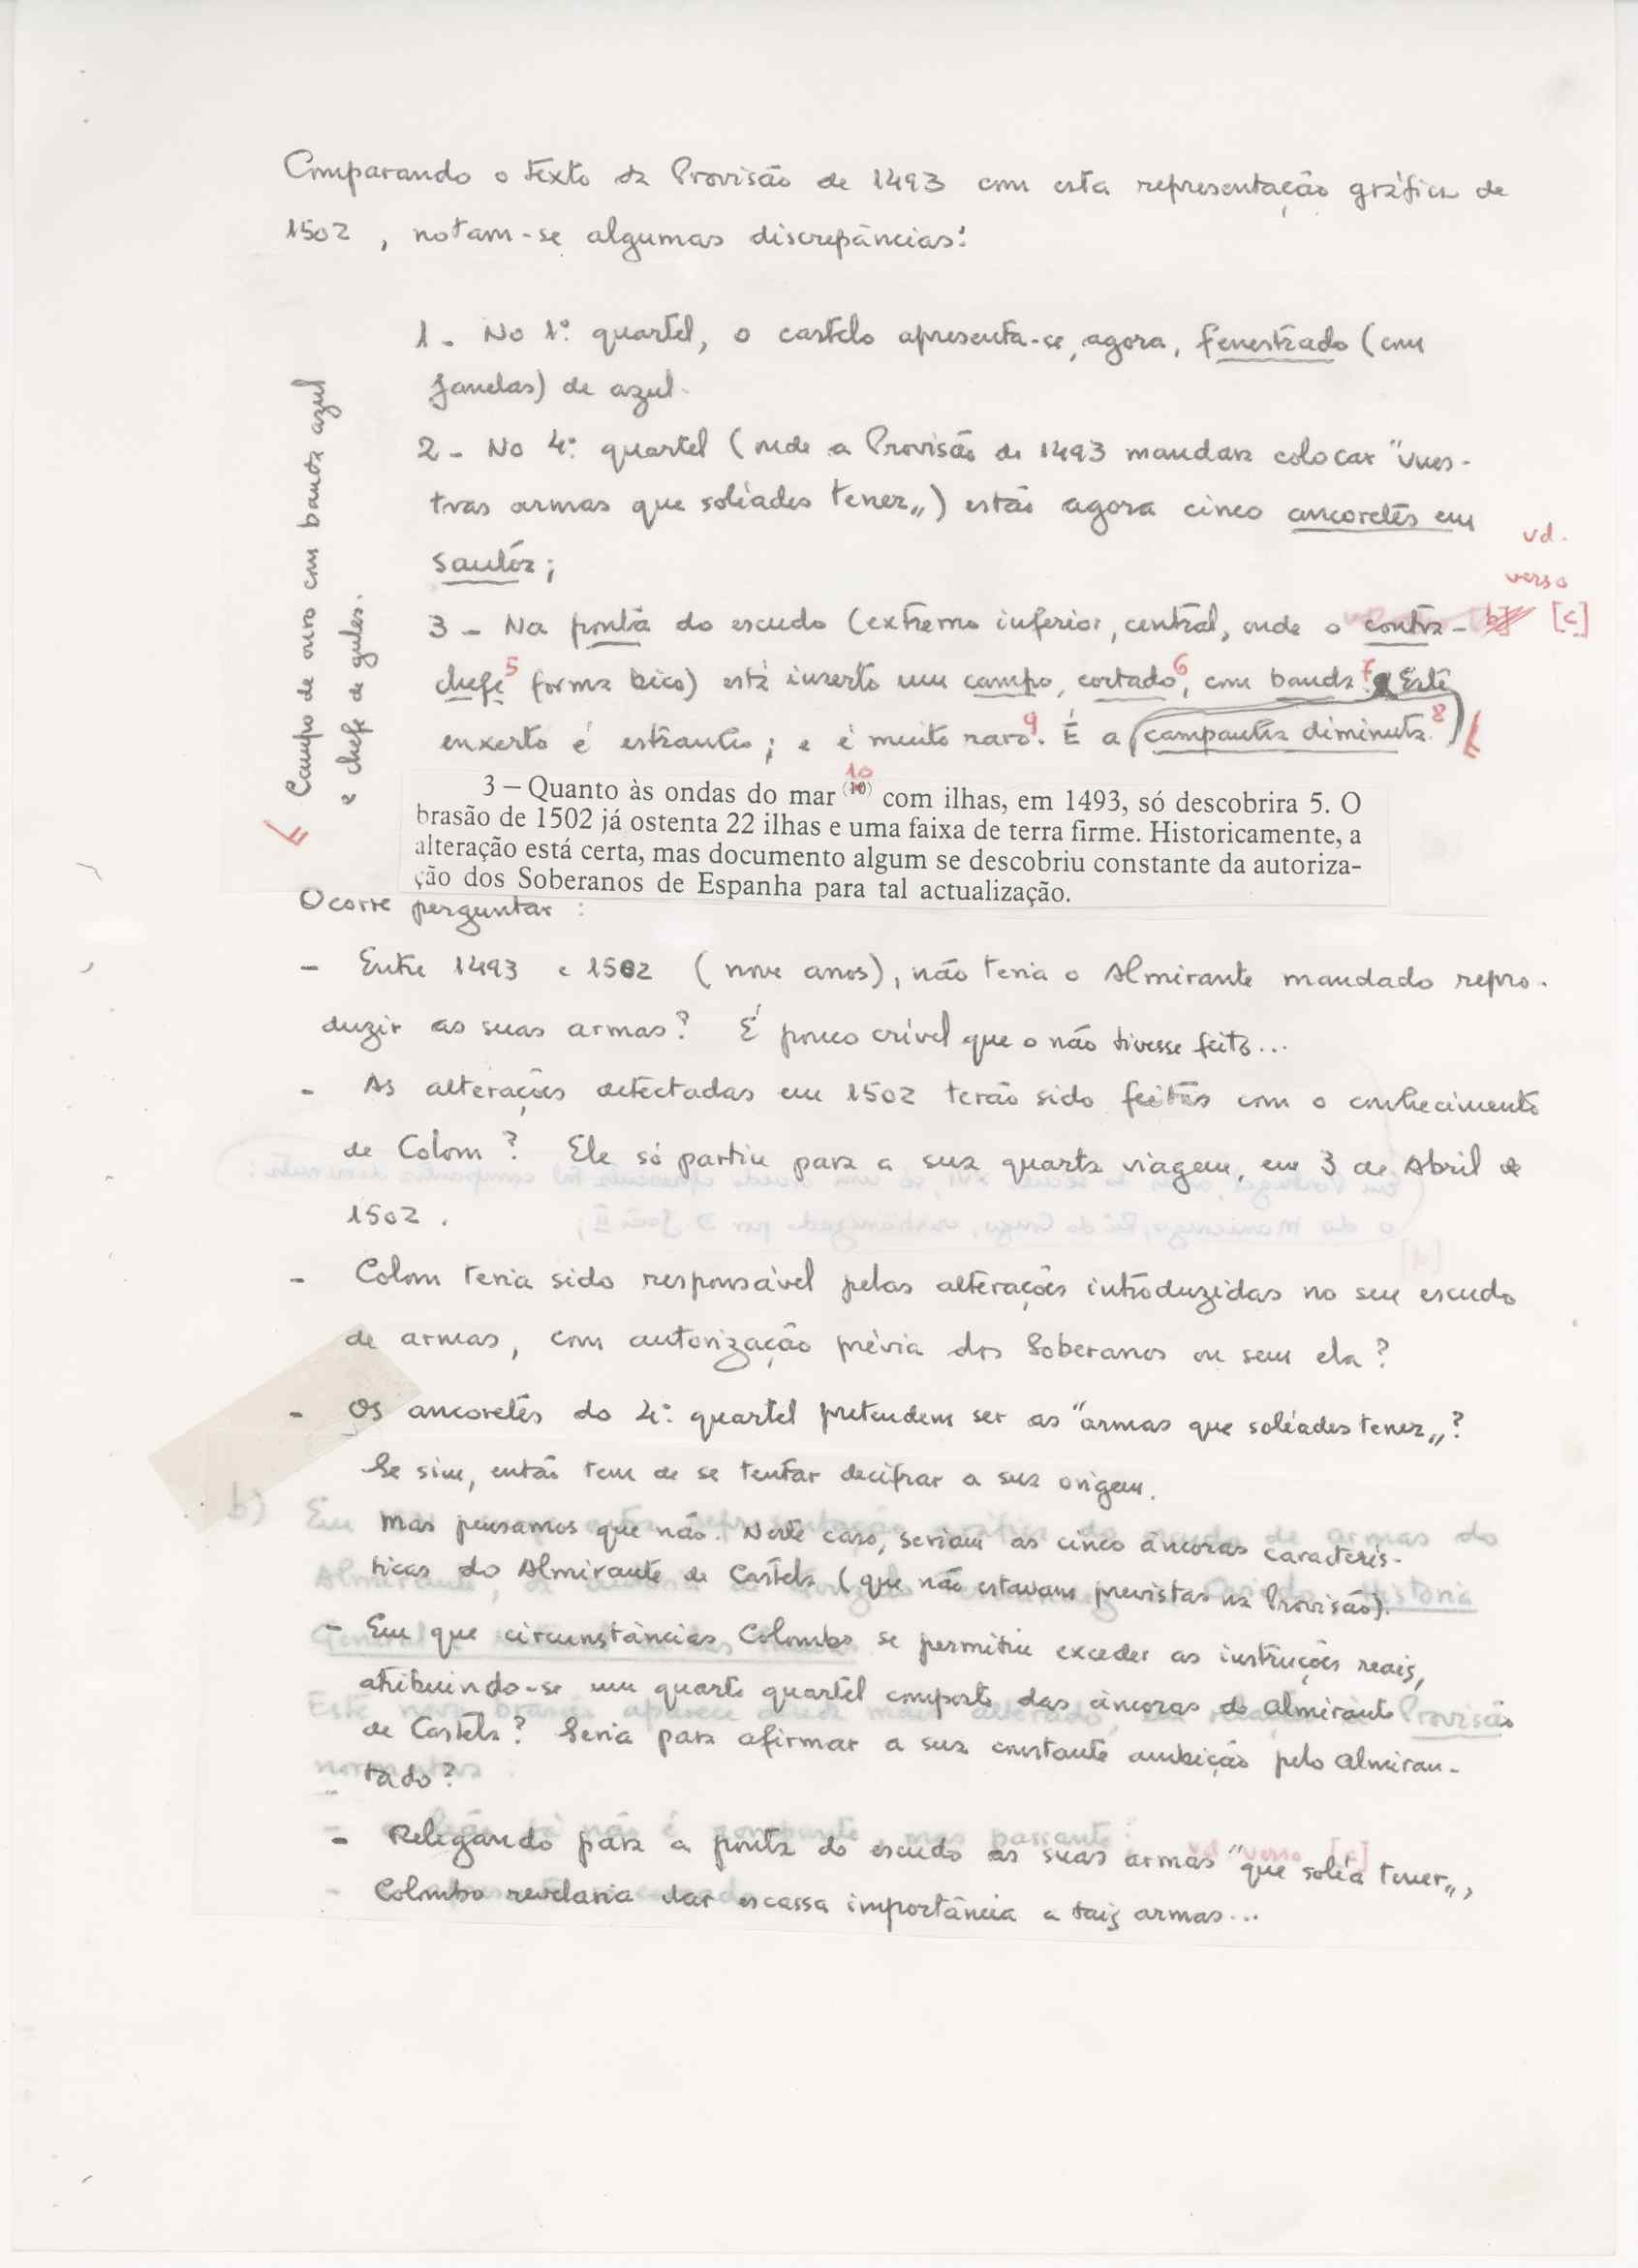 Comparando o texto da Provisão de 1493 com esta representação gráfica de
1502, notam-se algumas discrepâncias:
1 - No 1º quartel, o castelo apresenta-se, agora, fenestrado (com
janelas) de azul.
2 - No 4º quartel (onde a Provisão de 1493 mandava colocar "vues-
tras armas que soliades tener„) estão agora cinco ancoretes em
santór;
vd.
verso
3 - Na ponta do escudo (extremo inferior, central, onde o contra- [c]
chefe 5 forma bico) está inserto um campo, cortado 6, com banda 7. Este
enxerto é estranho; e é muito raro 9. É a (campanha diminuta 8)
Campo de ouro com banda azul
e chefe de gules.
3 – Quanto às ondas do mar (10) 10 com ilhas, em 1493, só descobrira 5. O
brasão de 1502 já ostenta 22 ilhas e uma faixa de terra firme. Historicamente, a
alteração está certa, mas documento algum se descobriu constante da autoriza-
ção dos Soberanos de Espanha para tal actualização.
Ocorre perguntar :
- Entre 1493 e 1502 (nove anos), não teria o Almirante mandado repro-
duzir as suas armas? É pouco crível que o não tivesse feito...
- As alterações detectadas em 1502 terão sido feitas com o conhecimento
de Colom? Ele só partiu para a sua quarta viagem, em 3 de Abril de
1502.
- Colom teria sido responsável pelas alterações introduzidas no seu escudo
de armas, com autorização prévia dos Soberanos ou sem ela?
- Os ancoretes do 4º quartel pretendem ser as "armas que soliades tener„?
Se sim, então tem de se tentar decifrar a sua origem.
b)
Mas pensamos que não. Neste caso, seriam as cinco âncoras caracterís-
ticas do Almirante de Castela (que não estavam previstas na Provisão).
- Em que circunstâncias Colombo se permitiu exceder as instruções reais,
atribuindo-se um quarto quartel composto das âncoras do Almirante
de Castela? Seria para afirmar a sua constante ambição pelo Almiran-
tado?
- Relegando para a ponta do escudo as suas armas "que solía tener„,
Colombo revelaria dar escassa importância a tais armas...